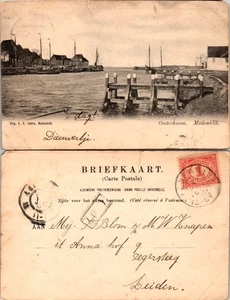 Oosterhaven, Medemblik.
dag!
Dieuwertje
BRIEFKAART.
(Carte Postale)
ALGEMEENE POSTVEREENIGING UNION POSTALE UNIVERSELLE
Zijde voor het adres bestemd. (Côté réservé à l'adresse)
AAN
D Blom M W Knapen
St Anna hof 9
Zegersteeg
Leiden.